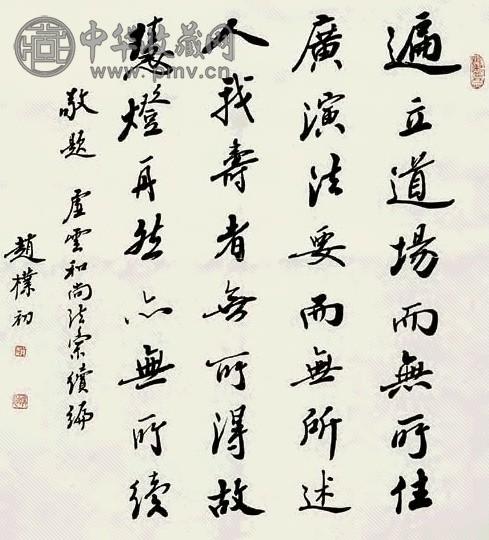 遍立道場而無所住
廣演法要而無所述
人我壽者無所得故
燈再然亦無所續
敬題 虛雲和尚法彙續編
趙樸初
中华收藏网
www.pmv.cn